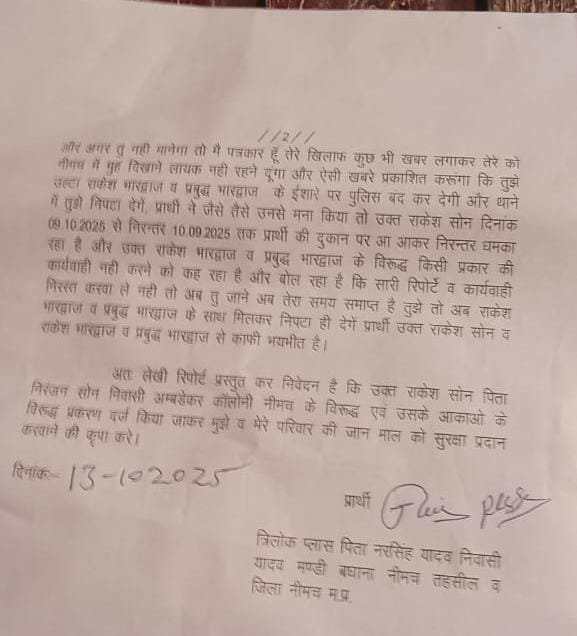 //2//
और अगर तु नही मानेगा तो मै पत्रकार हूँ तेरे खिलाफ कुछ भी खबर लगाकर तेरे को
नीमच में मुह दिखाने लायक नही रहने दूगा और ऐसी खबरे प्रकाशित करूंगा कि तुझे
उल्टा राकेश भारद्वाज व प्रबुद्ध भारद्वाज के ईशारे पर पुलिस बंद कर देगी और थाने
में तुझे निपटा देगें, प्रार्थी ने जैसे तैसे उनसे मना किया तो उक्त राकेश सोन दिनांक
09.10.2025 से निरन्तर 10.09.2025 तक प्रार्थी की दुकान पर आ आकर निरन्तर धमका
रहा है और उक्त राकेश भारद्वाज व प्रबुद्ध भारद्वाज के विरूद्ध किसी प्रकार की
कार्यवाही नही करने को कह रहा है और बोल रहा है कि सारी रिपोर्टे व कार्यवाही
निरस्त करवा ले नही तो अब तु जाने अब तेरा समय समाप्त है तुझे तो अब राकेश
भारद्वाज व प्रबुद्ध भारद्वाज के साथ मिलकर निपटा ही देगें प्रार्थी उक्त राकेश सोन व
राकेश भारद्वाज व प्रबुद्ध भारद्वाज से काफी भयभीत है।
अतः लेखी रिपोर्ट प्रस्तुत कर निवेदन है कि उक्त राकेश सोन पिता
निरंजन सोन निवासी अम्बडेकर कॉलोनी नीमच के विरूद्ध एवं उसके आकाओ के
विरूद्ध प्रकरण दर्ज किया जाकर मुझे व मेरे परिवार की जान माल को सुरक्षा प्रदान
करवाने की कृपा करे।
दिनांक:- 13-102025
प्रार्थी
त्रिलोक प्लास पिता नरसिंह यादव निवासी
यादव मण्डी बघाना नीमच तहसील व
जिला नीमच म.प्र.